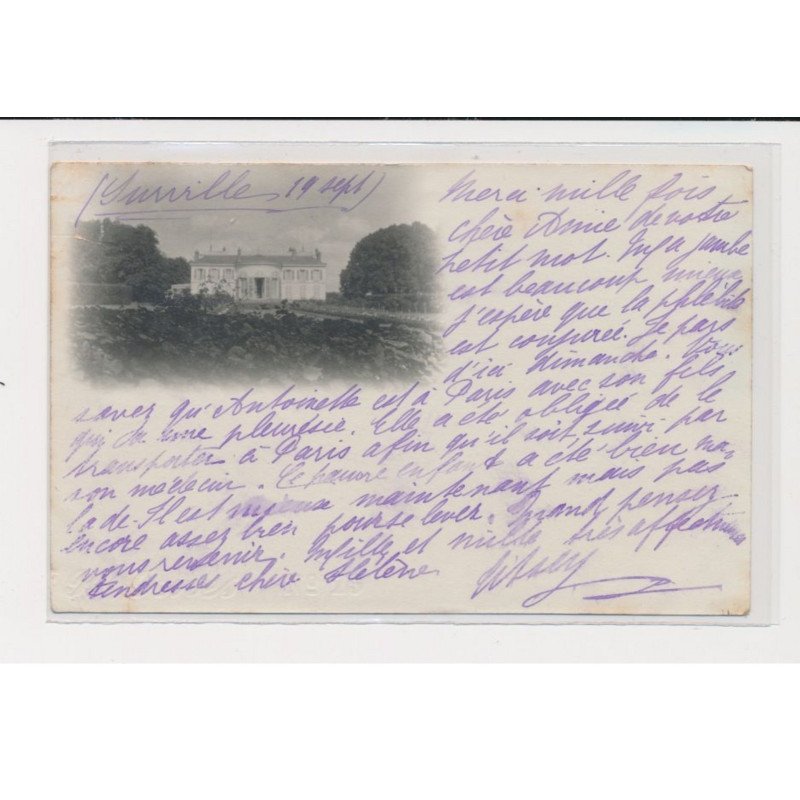 (Surville 19 sept)
Merci mille fois
chère Amie de votre
petit mot. Ma jambe
est beaucoup mieux
J'espère que la phlébite
est conjurée. Je pars
d'ici dimanche. Vous
savez qu'Antoinette est à Paris avec son fils
qui a une pleurésie. Elle a été obligée de le
transporter à Paris afin qu'il soit suivi par
son médecin. Ce pauvre enfant a été bien ma-
lade. Il est mieux maintenant mais pas
encore assez bien pour se lever. Quand pensez-
vous revenir. Mille et mille très affectueuses
tendresses chère Hélène